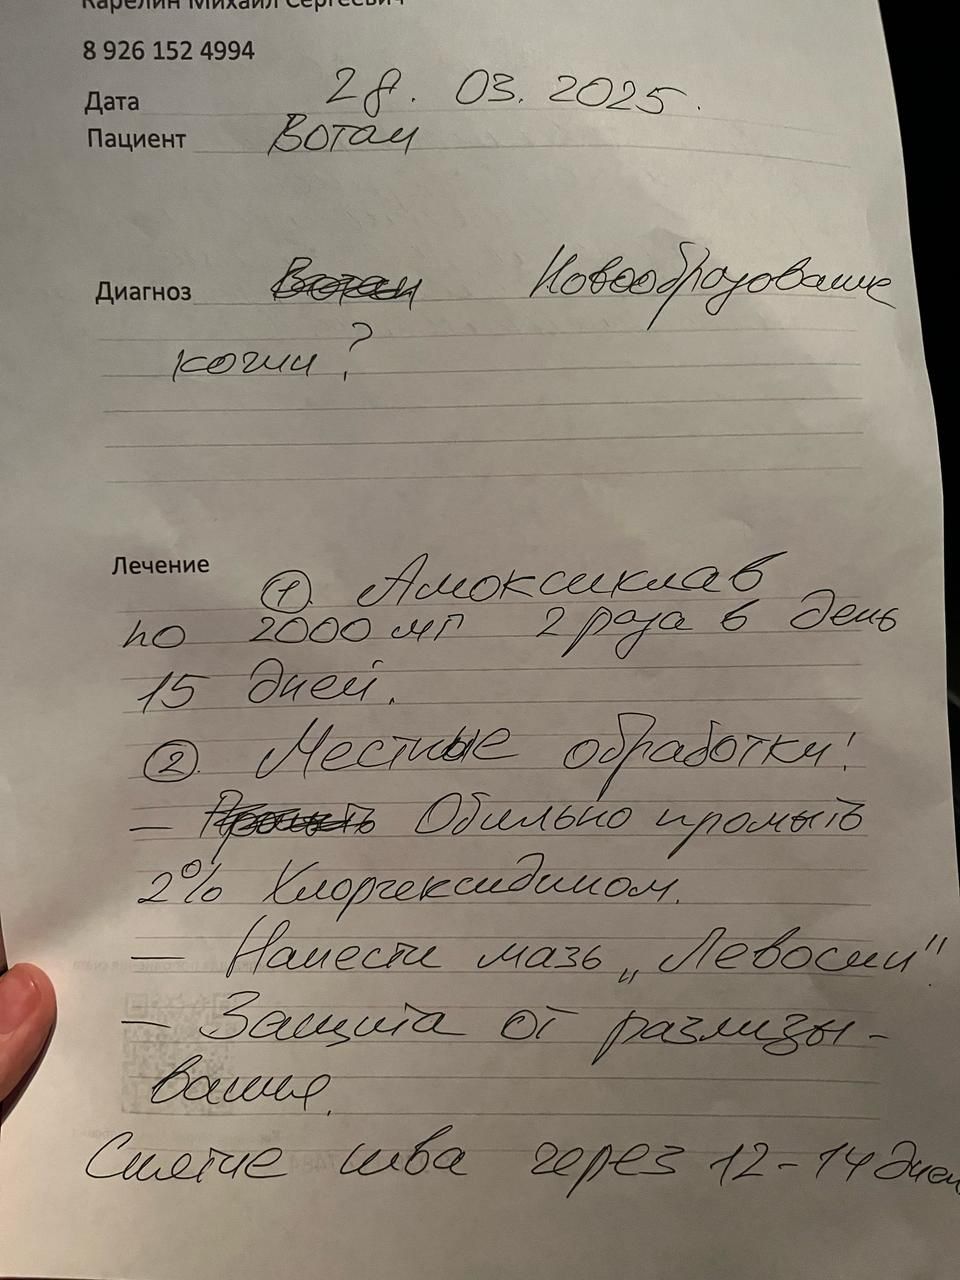 Карелин Михаил Сергеевич
8 926 152 4994
Дата 28. 03. 2025.
Пациент Вотан
Диагноз Вотан Новообразование
кожи?
Лечение
① Амоксиклав
по 2000 мг 2 раза в день
15 дней.
② Местные обработки!
— Промыть Обильно промыть
2% Хлоргексидином.
— Нанести мазь „Левосин"
— Защита от разлизы-
вания.
Снятие шва через 12-14 дней